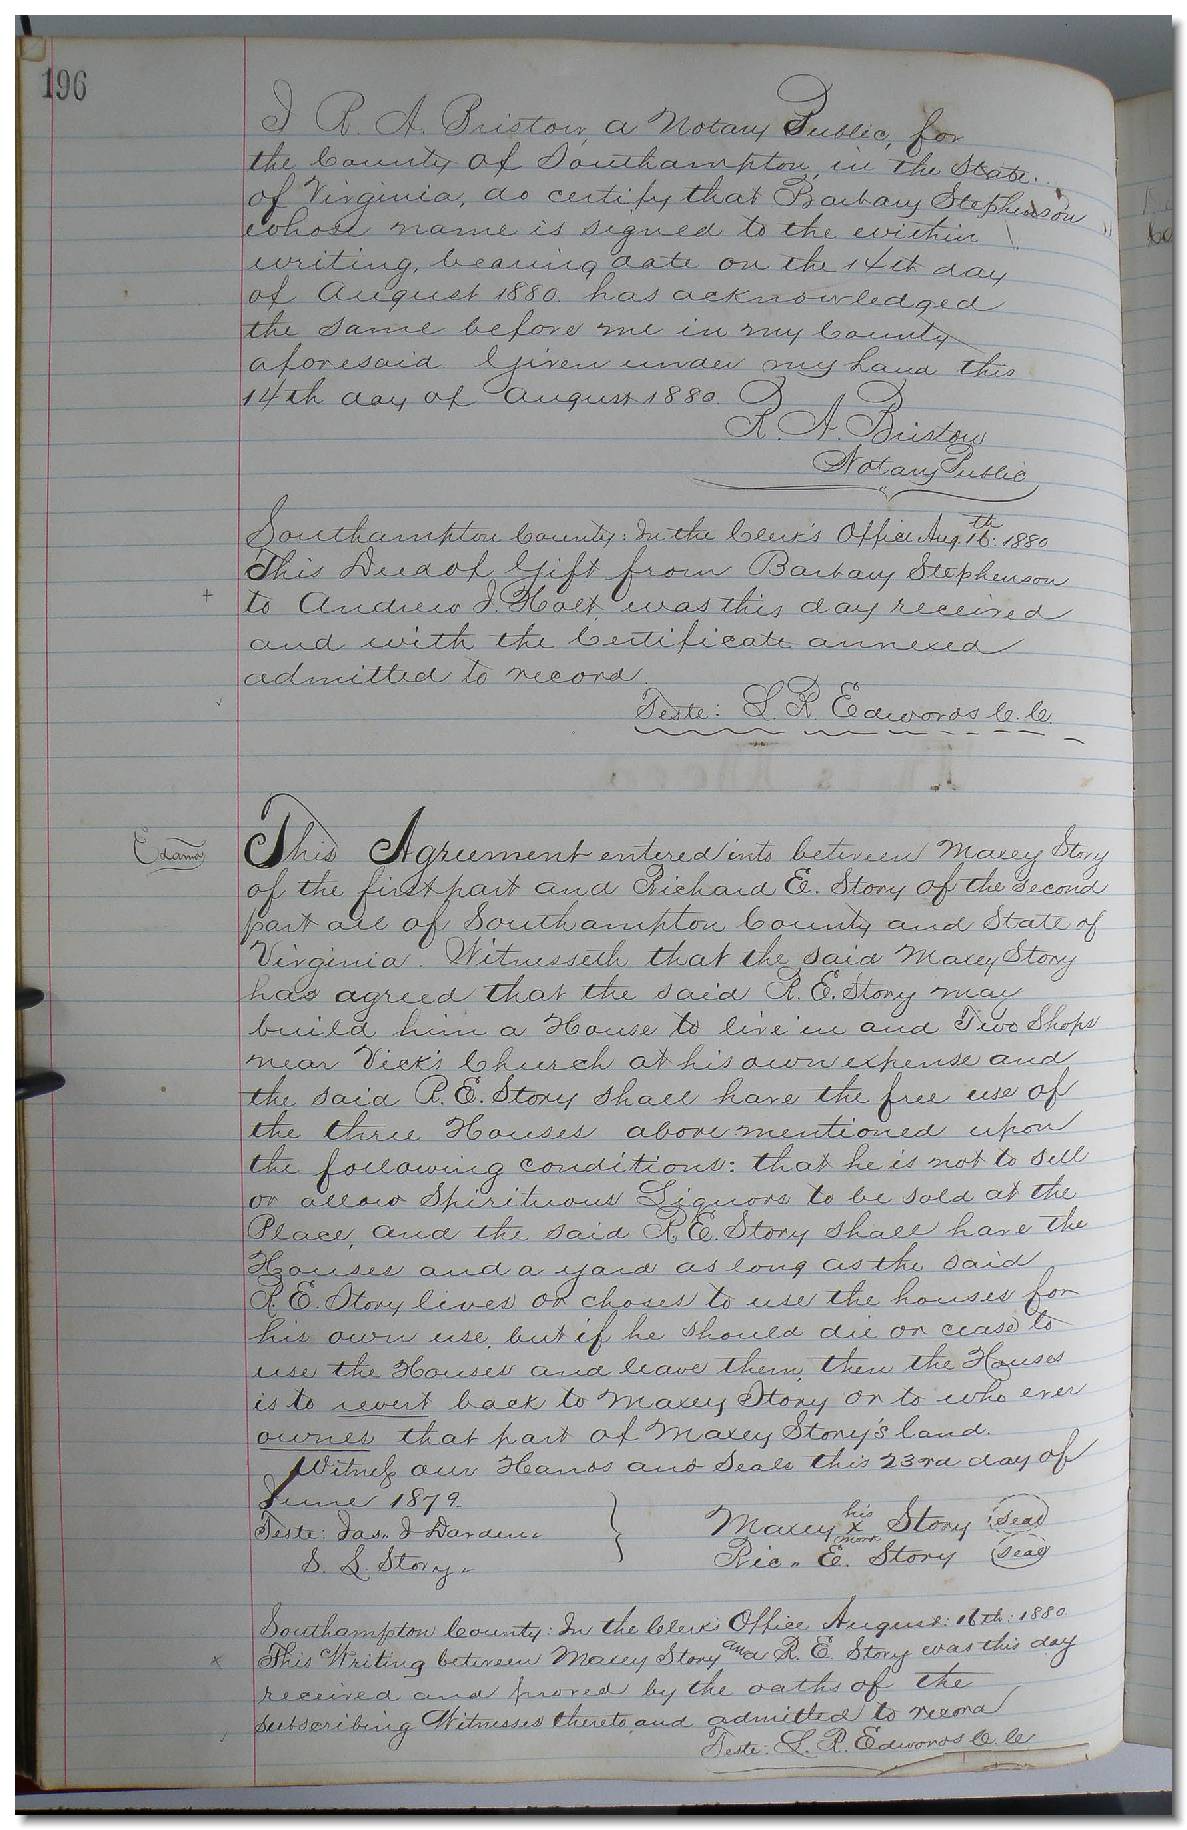 196
I R. A. Bristow, a Notary Public, for
the County of Southampton, in the State
of Virginia, do certify that Barbary Stephenson
whose name is signed to the within
writing, bearing date on the 14th day
of August 1880. has acknowledged
the same before me in my County
aforesaid. Given under my hand this
14th day of August 1880.
R. A. Bristow
Notary Public
Southampton County: In the Clerk's Office Aug 16th: 1880
This Deed of Gift from Barbary Stephenson
to Andrew J. Holt was this day received
and with the Certificate annexed
admitted to record.
Teste: L. R. Edwards C. C.
This Agreement entered into between Maxey Story
of the first part and Richard E. Story of the second
part all of Southampton County and State of
Virginia. Witnesseth that the said Maxey Story
has agreed that the said R. E. Story may
build him a House to live in and Two Shops
near Vick's Church at his own expense and
the said R. E. Story shall have the free use of
the three Houses above mentioned upon
the following conditions: that he is not to sell
or allow Spirituous Liquors to be sold at the
Place, and the said R E. Story shall have the
Houses and a yard as long as the said
R E. Story lives or choses to use the houses for
his own use, but if he should die or cease to
use the Houses and leave them, then the Houses
is to revert back to Maxey Story or to who ever
ownes that part of Maxey Story's land.
Witness our Hands and Seals this 23rd day of
June 1879.
Teste: Jas. J Darden
S. L. Story
Maxey his x mark Story (Seal)
Ric. E. Story (Seal)
Southampton County: In the Clerk's Office August: 16th: 1880
This Writing between Maxey Story and R. E. Story was this day
received and proved by the oaths of the
subscribing Witnesses thereto and admitted to record
Teste: L. R. Edwards C. C.